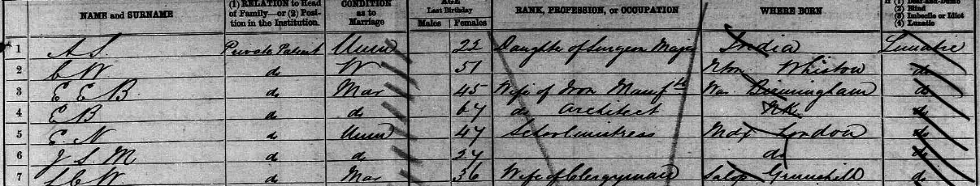 NAME and SURNAME (1) RELATION to Head of Family—or (2) Position in the Institution. CONDITION as to Marriage AGE Last Birthday Males Females RANK, PROFESSION, or OCCUPATION WHERE BORN (2) Blind (3) Imbecile or Idiot (4) Lunatic
1 A. S. Private Patient Unm 22 Daughter of Surgeon Major India Lunatic
2 C W do W 51 Whiston do
3 E E B do Mar 45 Wife of Iron Manufr War Birmingham do
4 E B do do 67 do Architect N K do
5 E N do Unm 47 Schoolmistress Mdx London do
6 J S M do do 27 do do
7 C W do Mar 36 Wife of Clergyman Salop do